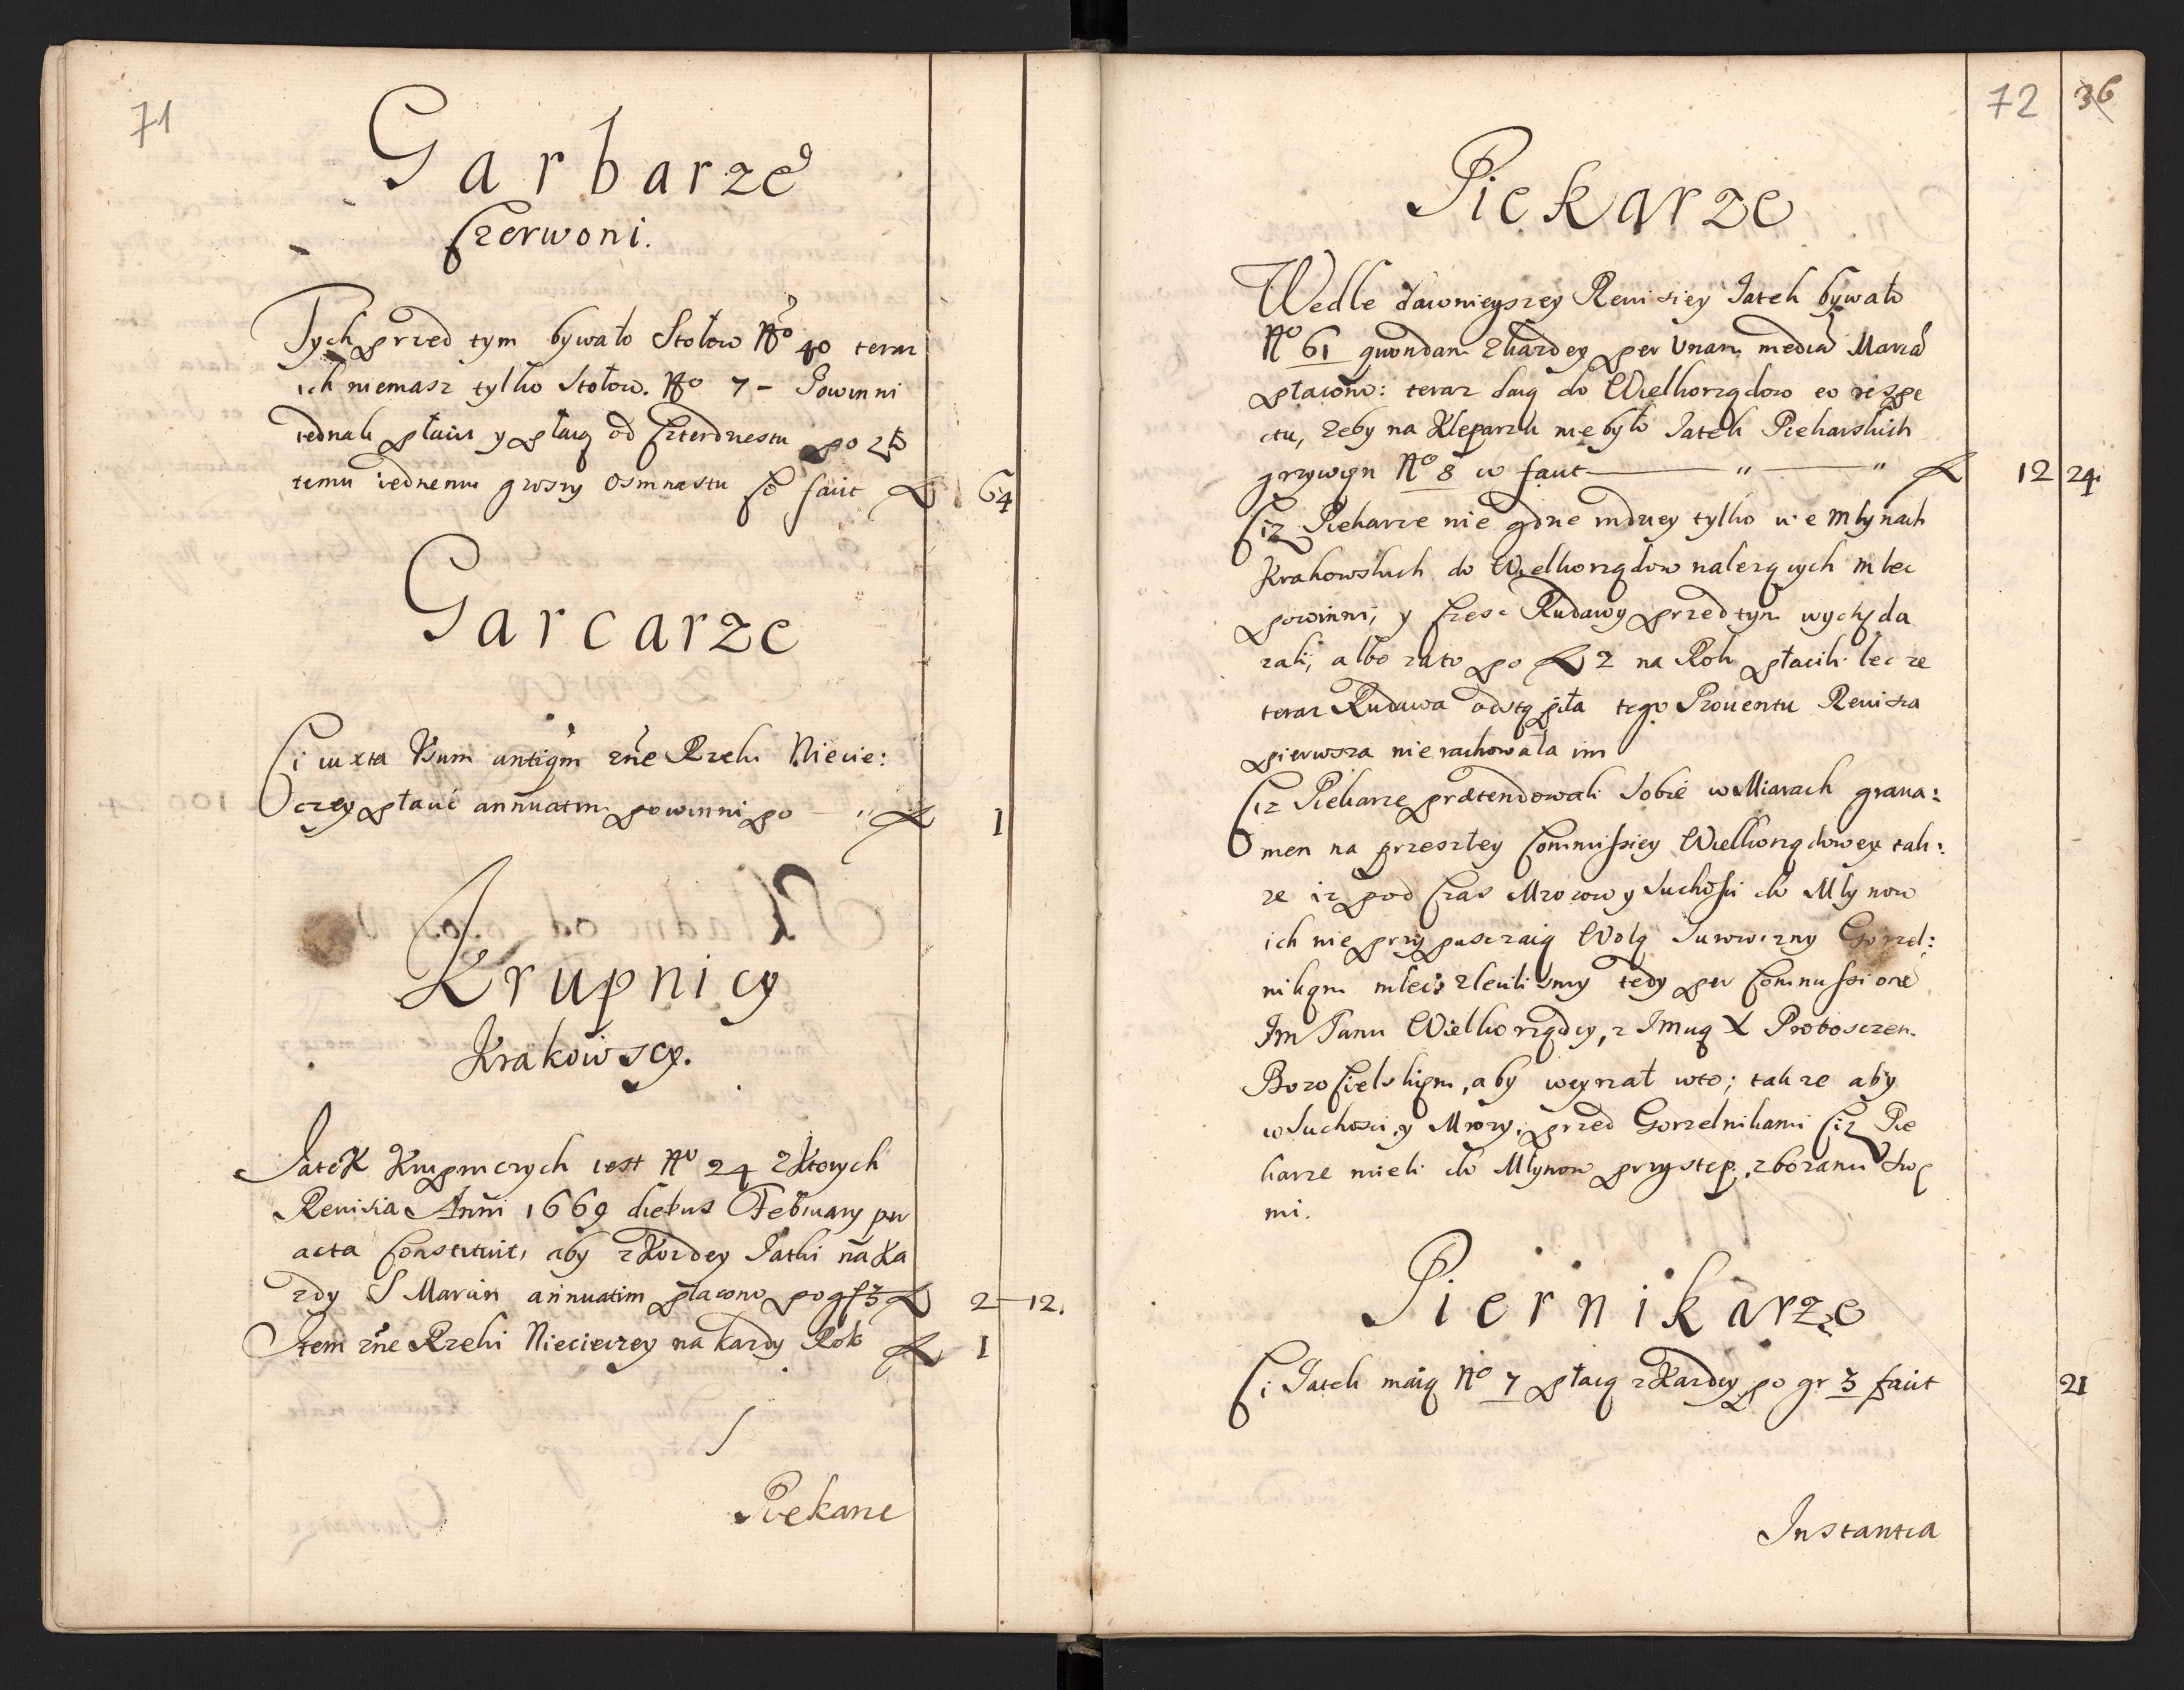 71
Garbarze
Czerwoni.
Tych przed tym bywało Stołow No 40 teraz
ich niemasz tylko Stołow. No 7 - Powinni
iednak płacic y płacą od Czterdziestu po zło
temu iednemu groszy osmnastu Co facit fl 64
Garcarze
Ci iuxta Usum antiqm zne Rzeki Niecie:
czey płacić annuatim powinni po " fl 1
Krupnicy
Krakowscy.
Jatek Krupniczych iest No 24 z Ktorych
Reuisia Anni 1669 diebus February per
acta Constituit, aby z Kozdey Jatki na Ka
zdy S Marcin annuatim płacono po gr 3 fl 2 - 12.
Item zne Rzeki Niecieczey na kazdy Rok fl 1
Piekarze
72 36
Piekarze
Wedle dawnieyszey Reuisiey Jatek bywało
No 61 quondam z kazdey per Unam mediã Marcã
płacono: teraz daią do Wielkorządow eo respe
ctu, zeby na Kleparzu nie było Jatek Piekarskich
grzywien No 8 w facit " " fl 12 24.
Ciz Piekarze nie gdzie indziey tylko we Młynach
Krakowskich do Wielkorządow nalezących mlec
powinni, y Czesc Rudawy przed tym wychęda
zali, albo zato po fl 2 na Rok płacili lec ze
teraz Rudawa odstąpiła tego Prouentu Reuisia
pierwsza nie rachowała im
Ciz Piekarze prætendowali sobie w Miarach graua:
men na przeszłey Commissiey Wielkorządowey tak:
ze iz pod Czas Mrozow y Suchosci do Młynow
ich nie przypuszczaią Wolą Gorzel:
nikom mlec; zlecilismy tedy per Commissionẽ
Jm Panu Wielkorządcy, z Jmcią X Proboszczem
Bozocielskiem, aby weyrzał wto; takze aby
w Suchosci, y Mrozy, przed Gorzelnikami Ciz Pie
karze mieli do Młynow przystęp, z bozami Swe
mi.
Piernikarze
Ci Jatek maią No 7 płacą z Kazdey po gr 3 facit 21
Instantia